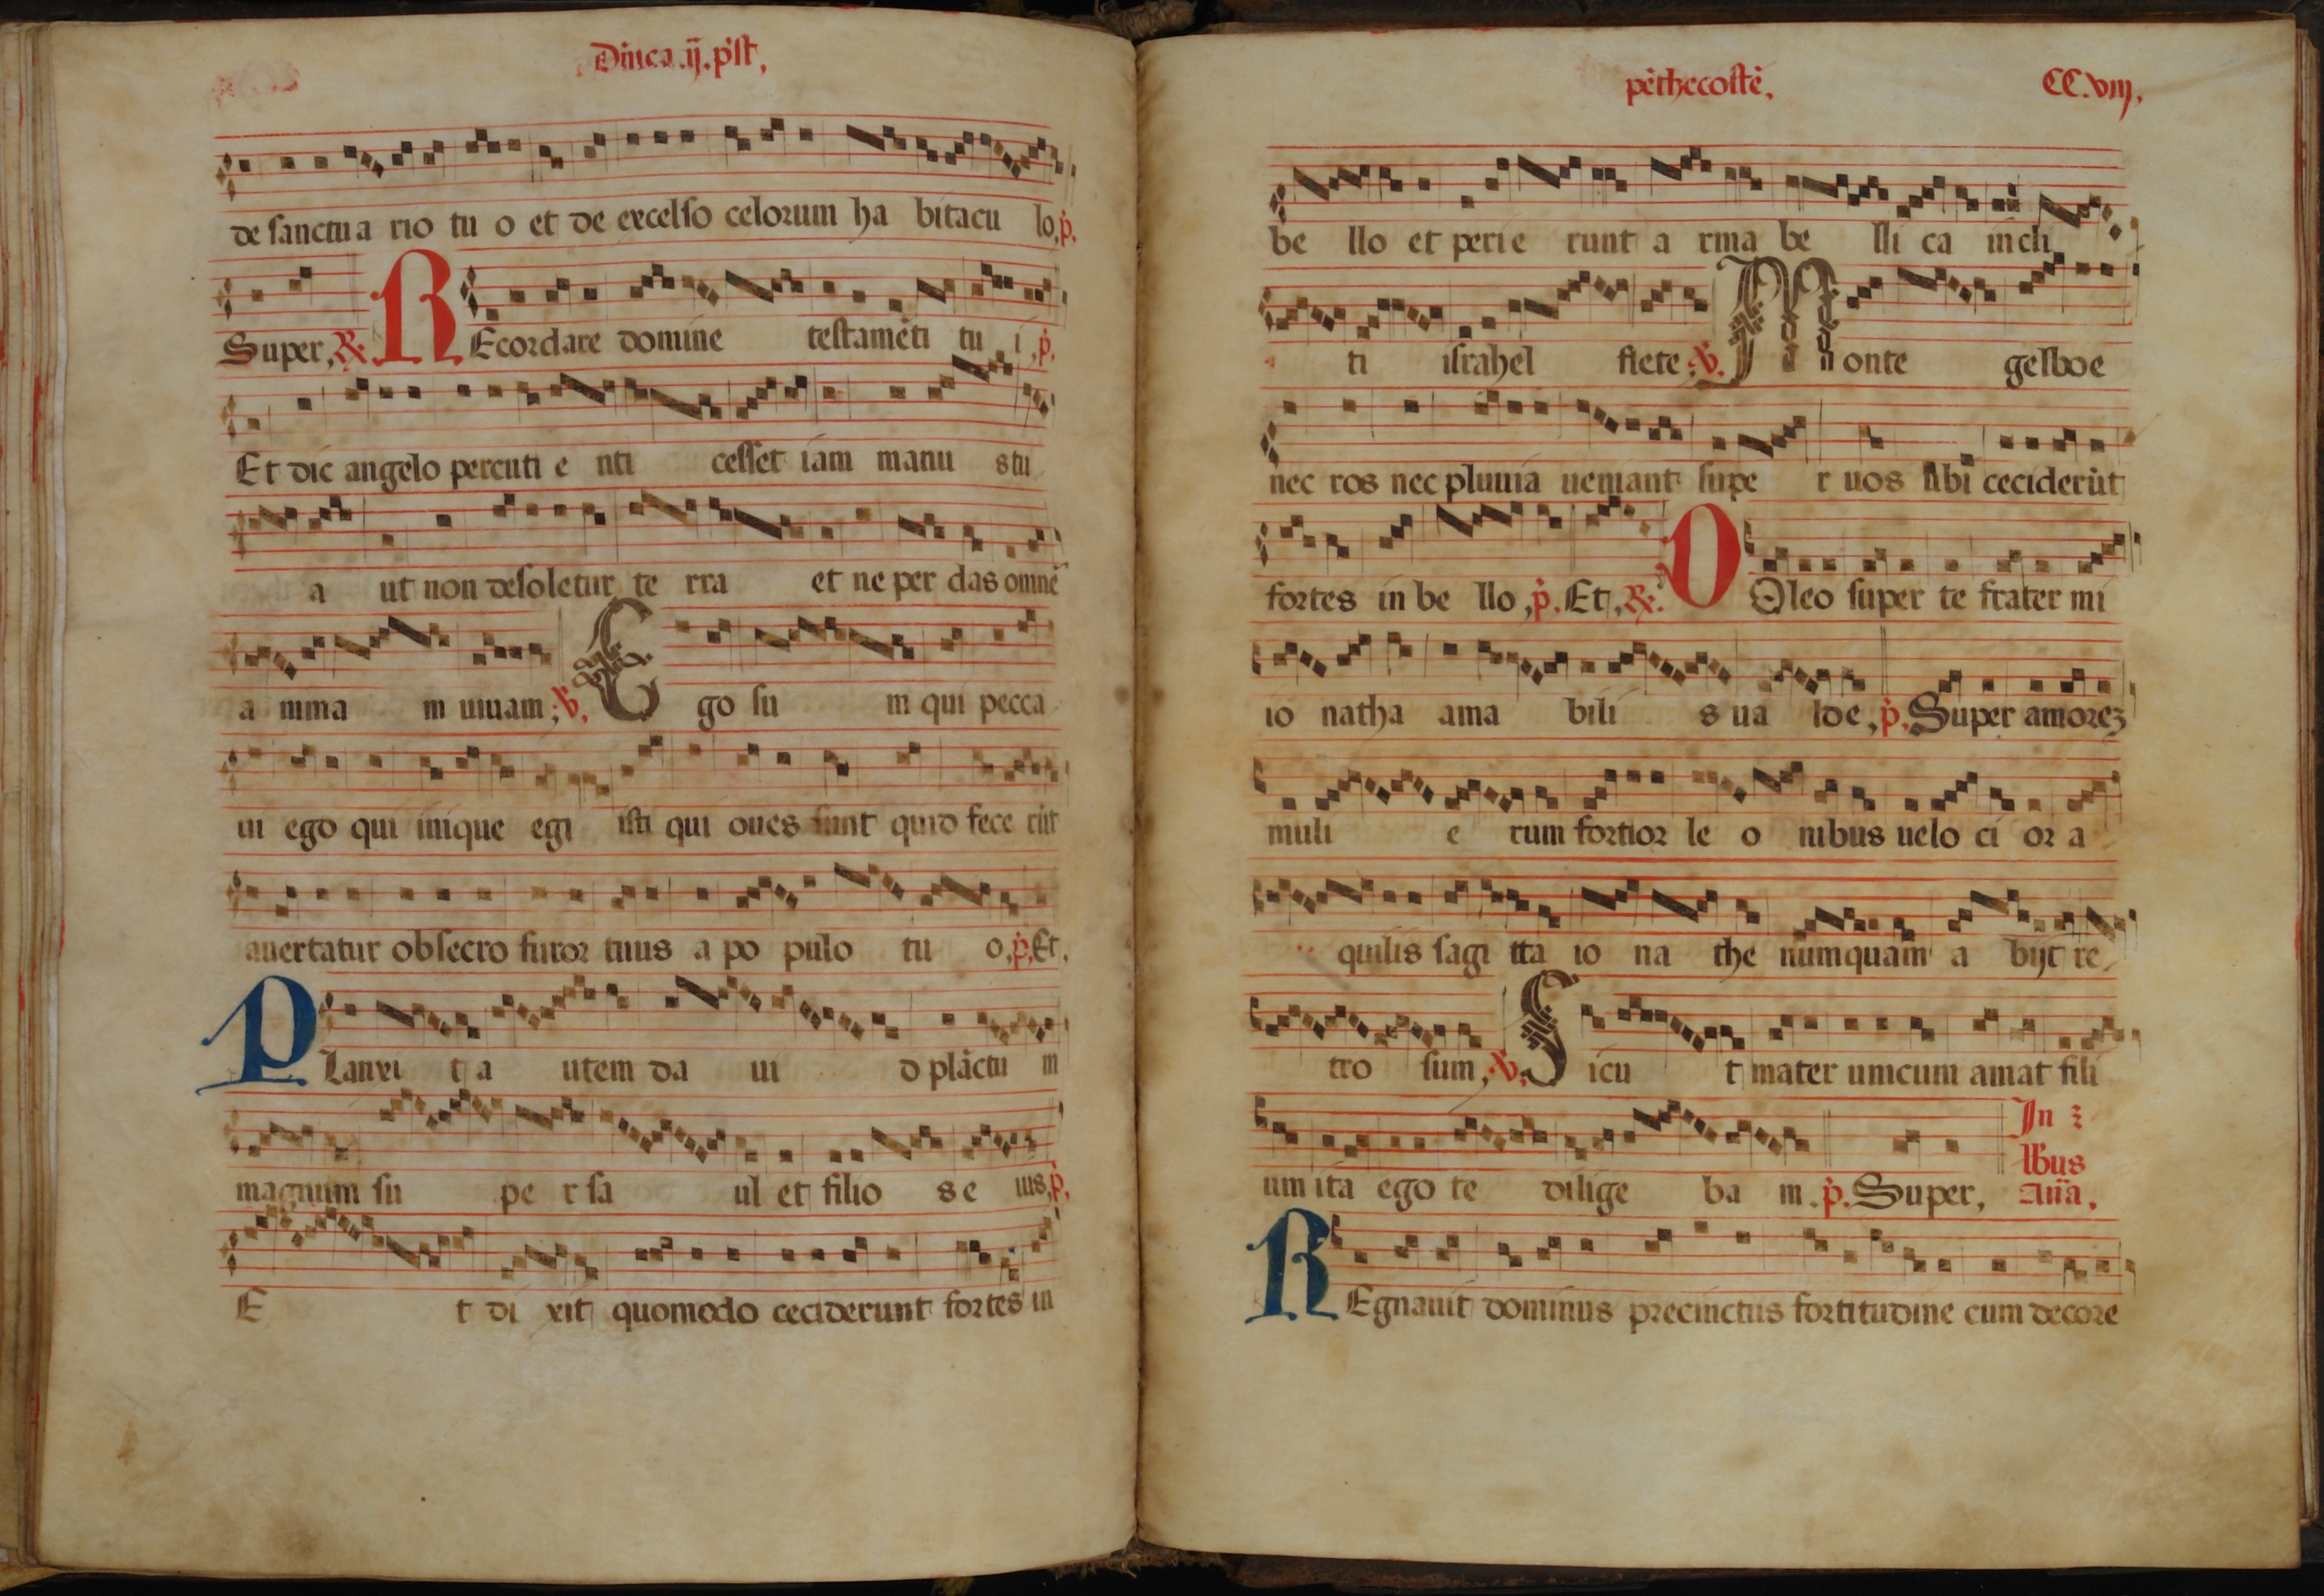 Dn̄ica .ij. p̄st,
de sanctua rio tu o et de excelso celorum ha bitacu lo, p̄.
Super, R̷. REcordare domine testamēti tu i, p̄.
Et dic angelo percuti e nti cesset iam manu stu
a ut non desoletur te rra et ne per das omnē
a nima m uiuam, v̷. Ego su m qui pecca
ui ego qui inique egi isti qui oues sunt quid fece rūt
auertatur obsecro furor tuus a po pulo tu o, p̄, Et,
PLanxi t a utem da ui d plāctu m
magnum su pe r sa ul et filio s e ius, p̄,
E t di xit quomodo ceciderunt fortes in
pēthecostē, CC.viij,
be llo et perie runt a rma be lli ca incli
ti israhel flete, v̷. Monte gelboe
nec ros nec pluuia ueniant supe r uos ubi ceciderūt
fortes in be llo, p̄. Et, R̷. OOleo super te frater mi
io natha ama bili s ua lde, p̄. Super amorez
muli e rum fortior le o nibus uelo ci or a
quilis sagi tta io na the numquam a bijt re
tro sum, v̷, Sicu t mater unicum amat fili
um ita ego te dilige ba m. p̄. Super,
In z
lbus
Añā,
REgnauit dominus precinctus fortitudine cum decore